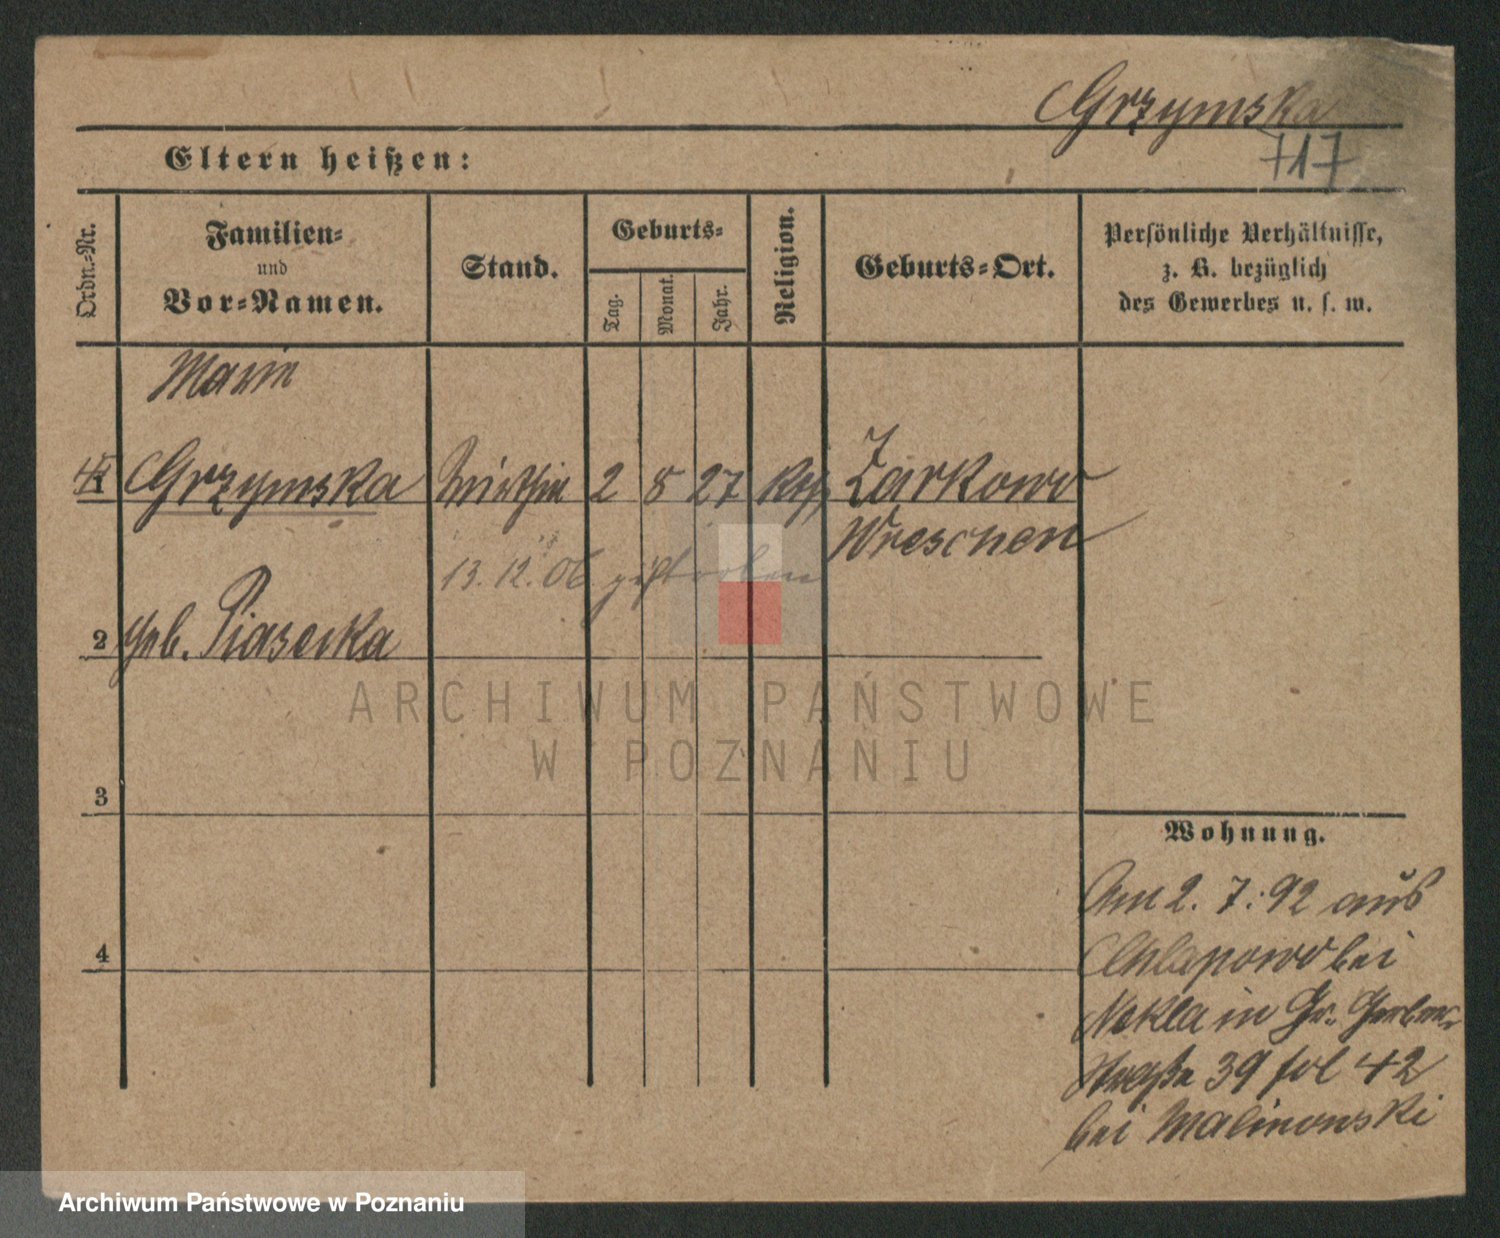 Grzymska
717
Eltern heißen:
Ordn.-Nr.
Familien-
und
Vor-Namen.
Stand.
Geburts-
Tag.
Monat.
Jahr.
Religion.
Geburts-Ort.
Persönliche Verhältnisse,
z. B. bezüglich
des Gewerbes u. s. w.
Marie
Grzymska Wirthin 2 8 27 kth Zarkowo
Wreschen
13.12.06 gestorben
2 geb. Piasecka
ARCHIWUM PAŃSTWOWE
W POZNANIU
3
Wohnung.
Am 2. 7. 92 aus
Chlapowo bei
4
Nekla in Gr. Gerber
Straße 39 fol 42
bei Malinowski
Archiwum Państwowe w Poznaniu